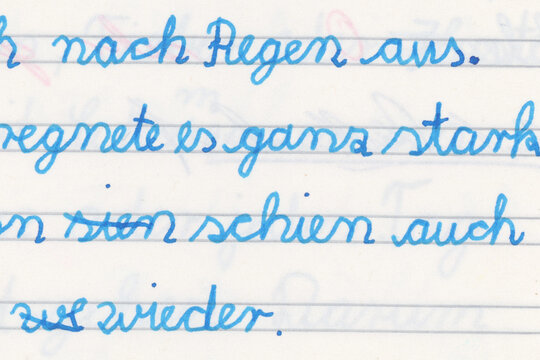 h nach Regen aus.
regnete es ganz stark
n sien schien auch
zwieder.